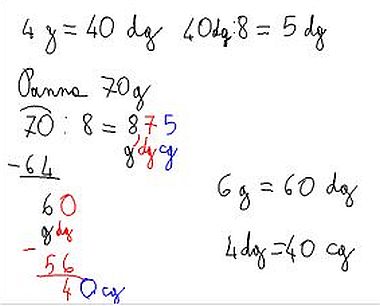 4 g = 40 dg 40dg:8 = 5 dg
Panna 70g
70 : 8 = 8,75
g dg cg
-64
60
g dg
6g = 60 dg
- 56
4dg=40 cg
40cg